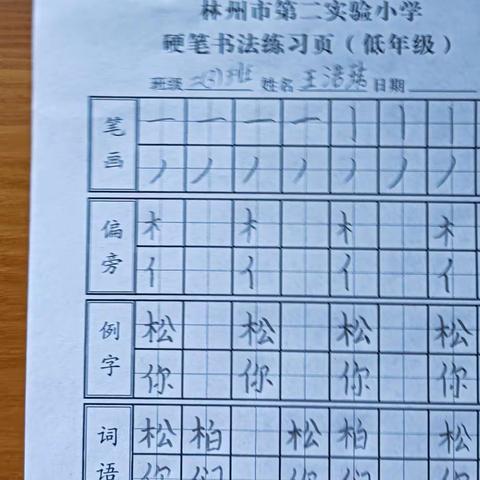 林州市第二实验小学
硬笔书法练习页（低年级）
班级 二(3)班 姓名 王浩 日期
笔画 一 一 一 一 丨 丨 丨
丿 丿 丿 丿 丿 丿 丿
偏旁 木 木 木 木
亻 亻 亻 亻
例字 松 松 松 松
你 你 你 你
词语 松 柏 松 柏 松
你 们 你 们 你